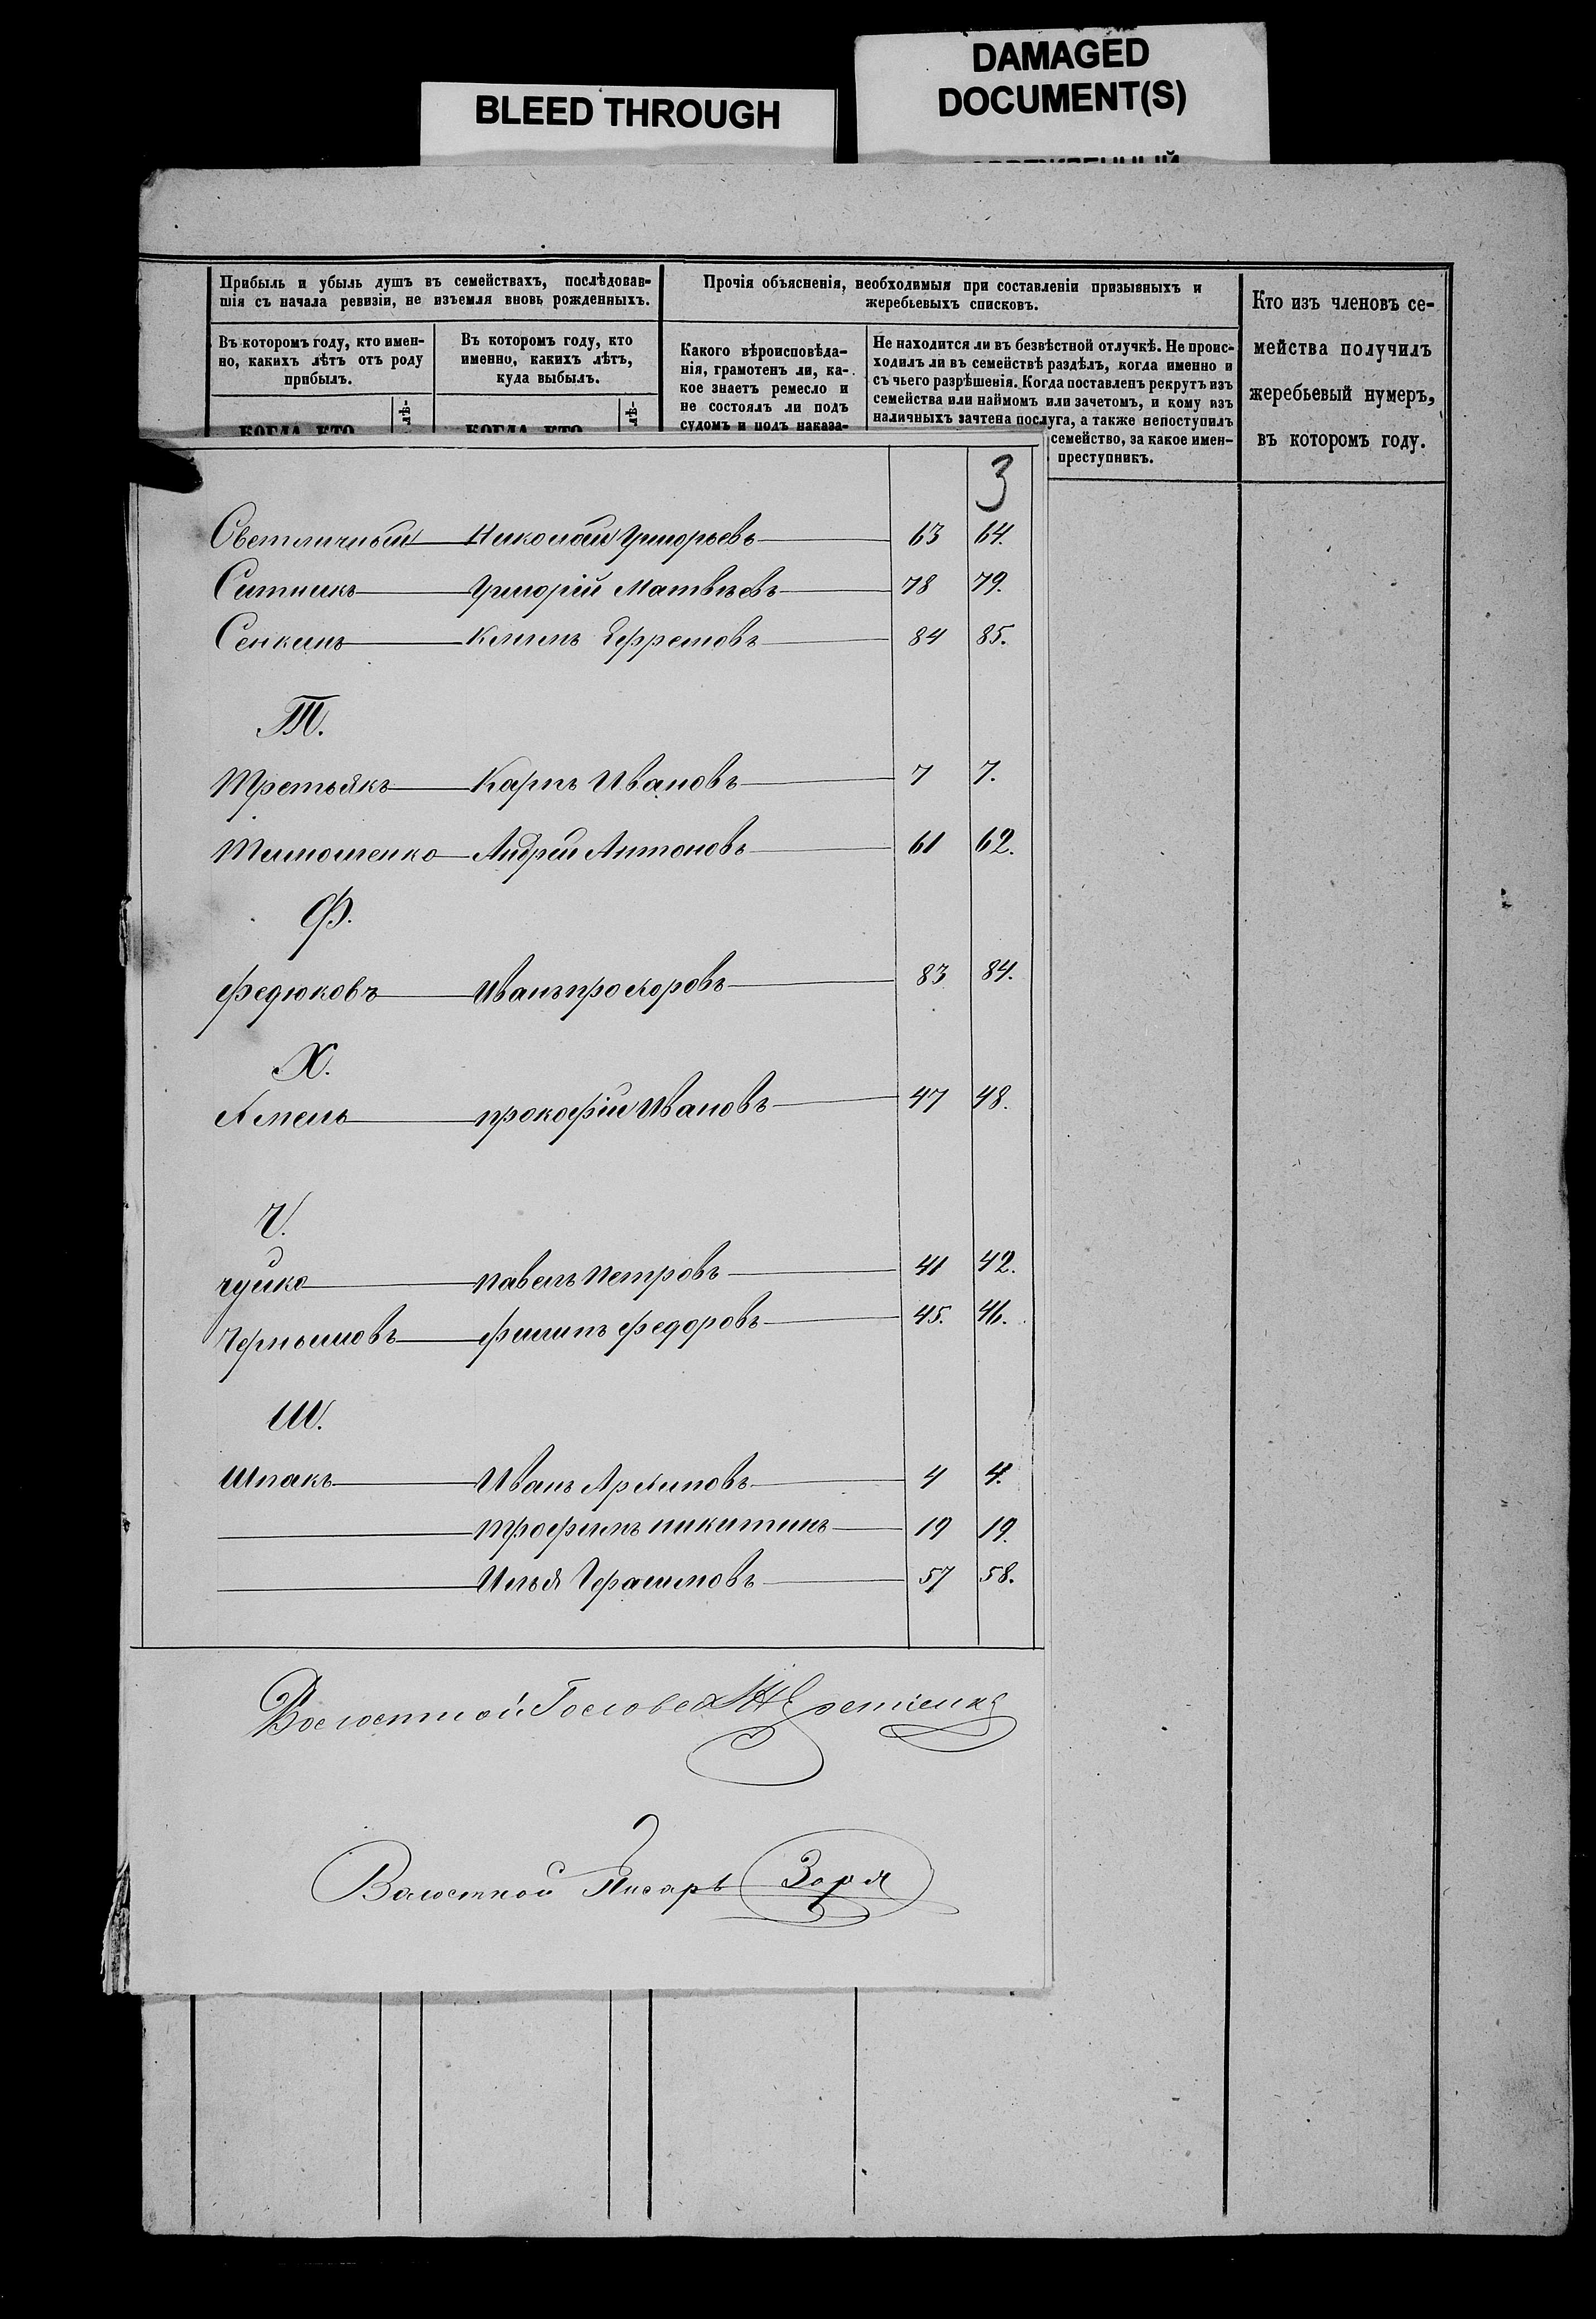 BLEED THROUGH
DAMAGED
DOCUMENT(S)
Прибыль и убыль душъ въ семействахъ, послѣдовав-
шія съ начала ревизіи, не изъемля вновь рожденныхъ.
Прочія объясненія, необходимыя при составленіи призывныхъ и
жеребьевыхъ списковъ.
Кто изъ членовъ се-
мейства получилъ
жеребьевый нумеръ,
въ которомъ году.
Въ которомъ году, кто имен-
но, какихъ лѣтъ отъ роду
прибылъ.
Въ которомъ году, кто
именно, какихъ лѣтъ,
куда выбылъ.
Какого вѣроисповѣда-
нія, грамотенъ ли, ка-
кое знаетъ ремесло и
не состоялъ ли подъ
судомъ и подъ наказа-
Не находится ли въ безвѣстной отлучкѣ. Не проис-
ходилъ ли въ семействѣ раздѣлъ, когда именно и
съ чьего разрѣшенія. Когда поставленъ рекрутъ изъ
семейства или наймомъ или зачетомъ, и кому изъ
наличныхъ зачтена послуга, а также непоступилъ
семейство, за какое имен-
преступникъ.
когда кто
лѣ-
когда кто
лѣ-
3
Светличный Николай Григорьевъ 63 64.
Ситникъ Григорій Матвѣевъ 78 79.
Сенкинъ Климъ Ефремовъ 84 85.
Т.
Третьякъ Карпъ Ивановъ 7 7.
Тимошенко Андрей Антоновъ 61 62.
Ф.
Федюковъ Иванъ Прохоровъ 83 84.
Х.
Хмель Прокофій Ивановъ 47 48.
Ч.
Чуйко Павелъ Петровъ 41 42.
Чернышовъ Филипъ Федоровъ 45. 46.
Ш.
Шпакъ Иванъ Архиповъ 4 4.
Трофимъ Никитинъ 19 19.
Илья Герасимовъ 57 58.
Волостной Голова
Волостной Писарь Заря